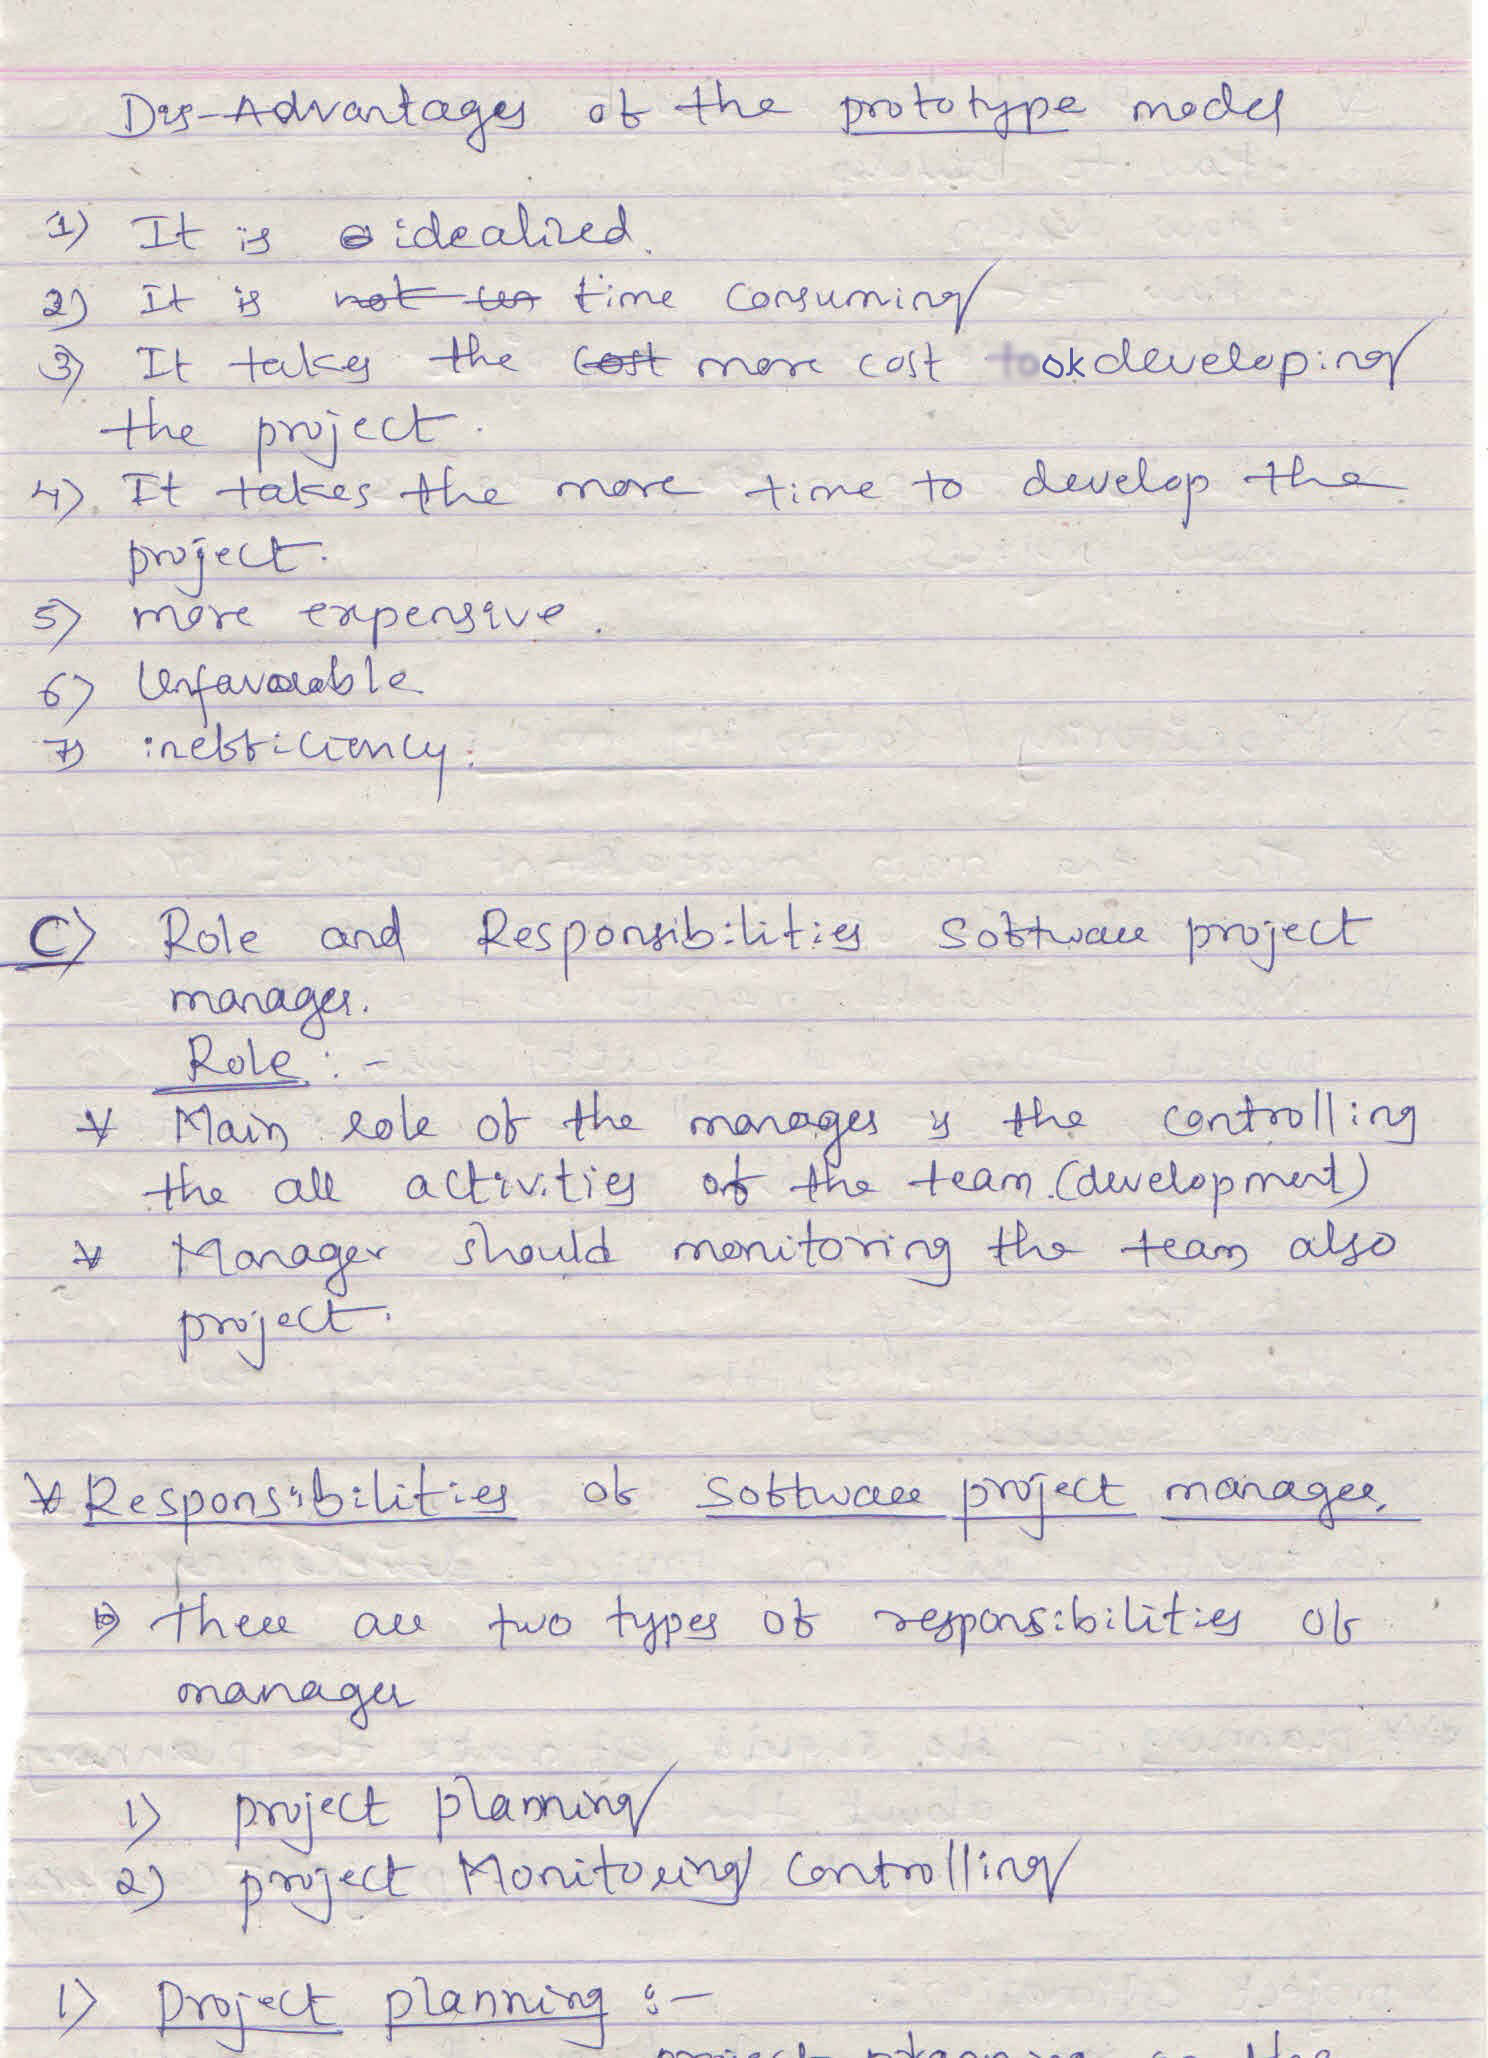 Dis-Advantages of the prototype model
1) It is idealized.
2) It is not time consuming
3) It takes the cost more cost took developing
the project.
4) It takes the more time to develop the
project.
5) more expensive.
6) Unfavourable
7) inefficiency.
C) Role and Responsibilities Software project
manager.
Role :-
* Main role of the manager is the controlling
the all activities of the team (development)
* Manager should monitoring the team also
project.
* Responsibilities of Software project manager.
there are two types of responsibilities of
manager
1) project planning
2) project Monitoring controlling
1) Project planning :-
project planning is the